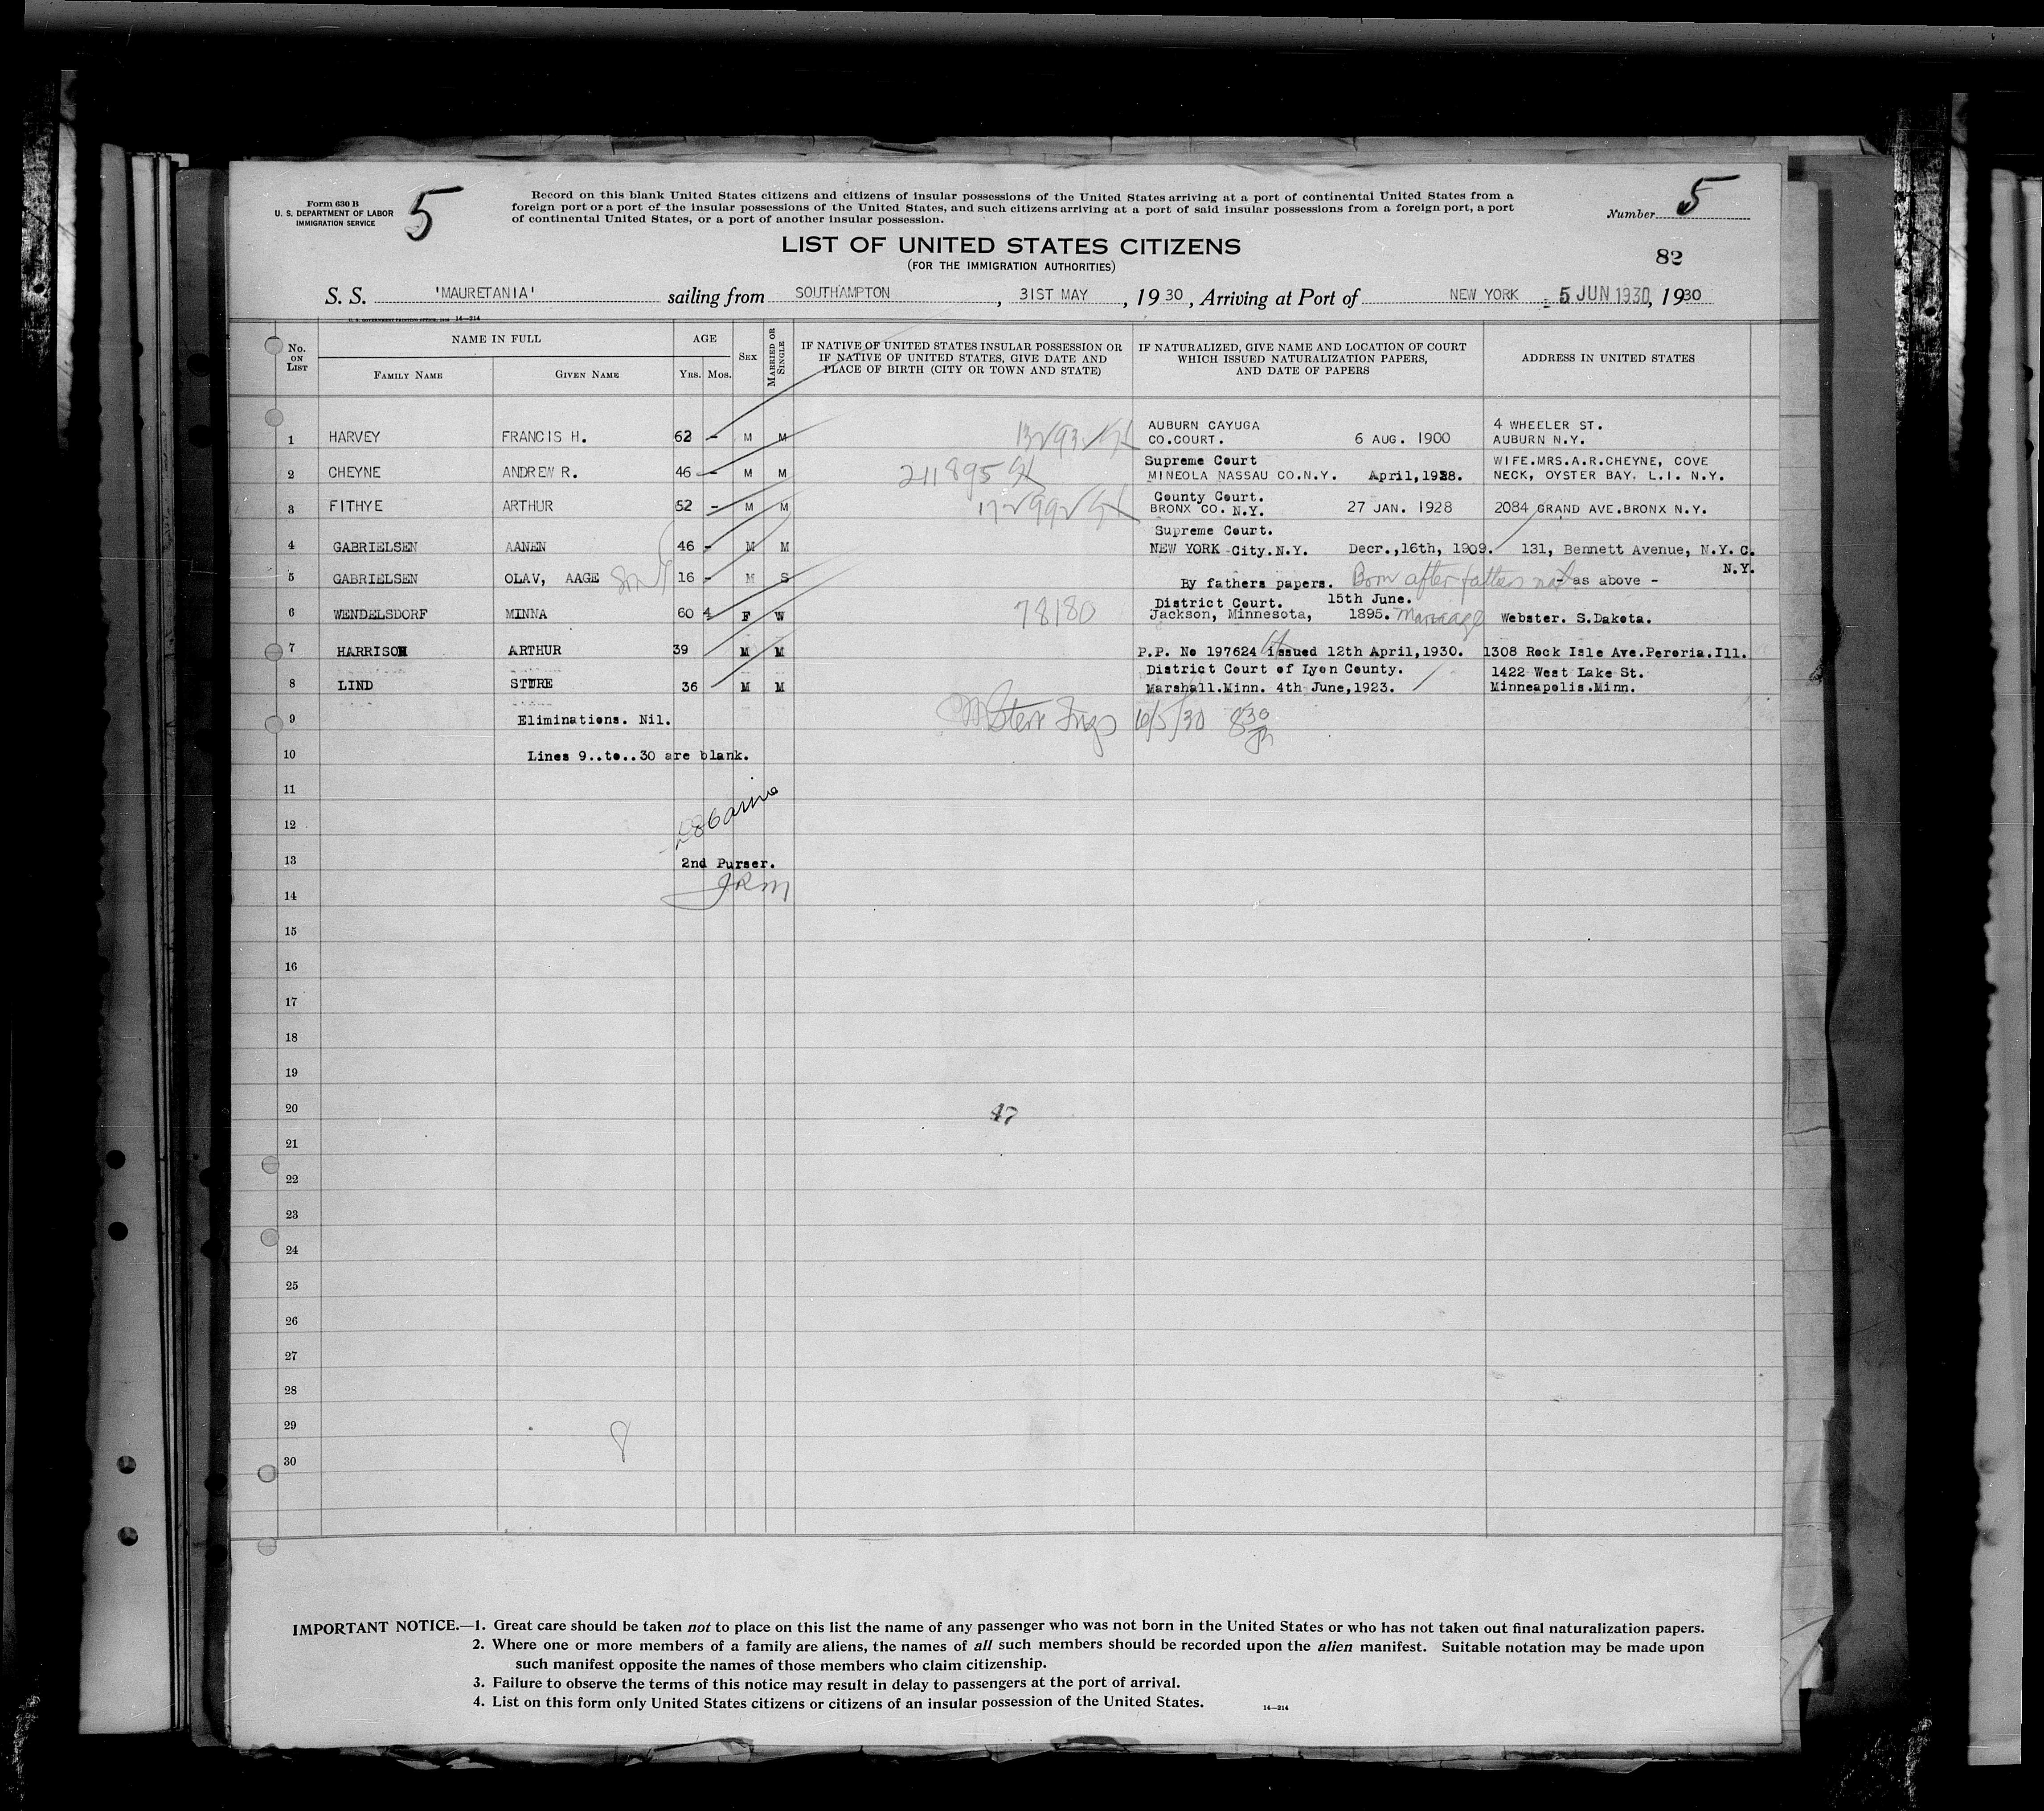 Form 630 B
U. S. DEPARTMENT OF LABOR
IMMIGRATION SERVICE
5
Record on this blank United States citizens and citizens of insular possessions of the United States arriving at a port of continental United States from a
foreign port or a port of the insular possessions of the United States, and such citizens arriving at a port of said insular possessions from a foreign port, a port
of continental United States, or a port of another insular possession.
Number 5
LIST OF UNITED STATES CITIZENS
(FOR THE IMMIGRATION AUTHORITIES)
82
S. S. 'MAURETANIA' sailing from SOUTHAMPTON, 31ST MAY, 1930, Arriving at Port of NEW YORK 5 JUN 1930, 1930
U. S. GOVERNMENT PRINTING OFFICE 14—214
No. ON LIST
NAME IN FULL
FAMILY NAME GIVEN NAME
AGE
YRS. MOS.
SEX
MARRIED OR SINGLE
IF NATIVE OF UNITED STATES INSULAR POSSESSION OR
IF NATIVE OF UNITED STATES, GIVE DATE AND
PLACE OF BIRTH (CITY OR TOWN AND STATE)
IF NATURALIZED, GIVE NAME AND LOCATION OF COURT
WHICH ISSUED NATURALIZATION PAPERS,
AND DATE OF PAPERS
ADDRESS IN UNITED STATES
AUBURN CAYUGA 4 WHEELER ST.
1 HARVEY FRANCIS H. 62 - M M CO.COURT. 6 AUG. 1900 AUBURN N.Y.
Supreme Court WIFE.MRS.A.R.CHEYNE, COVE
2 CHEYNE ANDREW R. 46 - M M 211895 MINEOLA NASSAU CO.N.Y. April,1928. NECK, OYSTER BAY. L.I. N.Y.
County Court.
3 FITHYE ARTHUR 52 - M M BRONX CO. N.Y. 27 JAN. 1928 2084 GRAND AVE.BRONX N.Y.
Supreme Court.
4 GABRIELSEN AANEN 46 - M M NEW YORK City.N.Y. Decr.,16th, 1909. 131, Bennett Avenue, N.Y. C.
N.Y.
5 GABRIELSEN OLAV, AAGE Son 16 - M S By fathers papers. Born after fathers nat - as above -
District Court. 15th June.
6 WENDELSDORF MINNA 60 4 F W 78180 Jackson, Minnesota, 1895. Marriage Webster. S.Dakota.
7 HARRISON ARTHUR 39 M M P.P. No 197624 issued 12th April,1930. 1308 Rock Isle Ave.Peroria.Ill.
District Court of Lyon County. 1422 West Lake St.
8 LIND STURE 36 M M Marshall.Minn. 4th June,1923. Minneapolis.Minn.
9 Eliminations. Nil. 6/5/30 8 30
10 Lines 9..to..30 are blank.
11
12
13 2nd Purser.
14 JRM
15
16
17
18
19
20 47
21
22
23
24
25
26
27
28
29 8
30
IMPORTANT NOTICE.—1. Great care should be taken not to place on this list the name of any passenger who was not born in the United States or who has not taken out final naturalization papers.
2. Where one or more members of a family are aliens, the names of all such members should be recorded upon the alien manifest. Suitable notation may be made upon
such manifest opposite the names of those members who claim citizenship.
3. Failure to observe the terms of this notice may result in delay to passengers at the port of arrival.
4. List on this form only United States citizens or citizens of an insular possession of the United States.
14—214